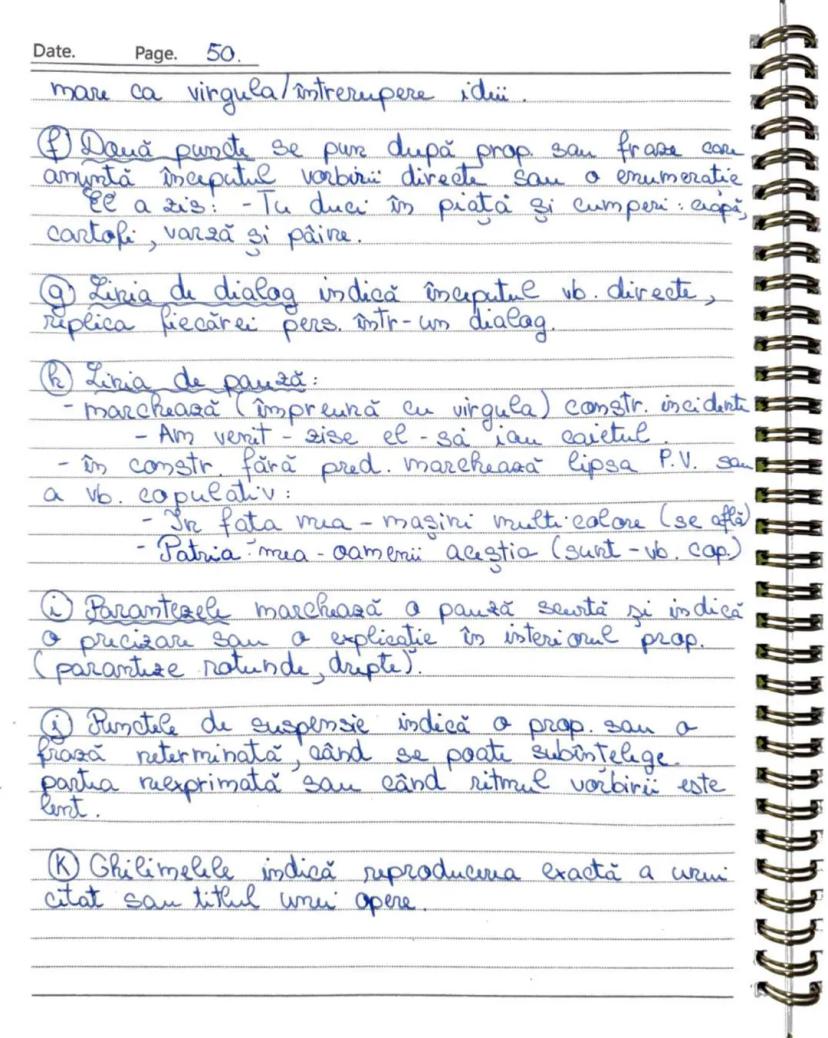 Date. Page. 50.
mare ca virgula/întrerupere idei.
f) Două puncte se pun după prop. sau fraze care
anunță începutul vorbirii directe sau o enumerație
El a zis: - Tu duci în piață și cumperi: ceapă,
cartofi, varză și pâine.
g) Linia de dialog indică începutul vb. directe,
replica fiecărei pers. într-un dialog.
h) Linia de pauză:
- marchează (împreună cu virgula) constr. incidente
- Am venit - zise el - să iau caietul.
- în constr. fără pred. marchează lipsa P.V. sau
a vb. copulativ:
- În fața mea - mașini multicolore (se află)
- Patria mea - oamenii aceștia (sunt - vb. cop.)
i) Parantezele marchează o pauză scurtă și indică
o precizare sau o explicație în interiorul prop.
(paranteze rotunde, drepte).
j) Punctele de suspensie indică o prop. sau o
frază neterminată, când se poate subînțelege
partea neexprimată sau când ritmul vorbirii este
lent.
K) Ghilimelele indică reproducerea exactă a unui
citat sau titlul unei opere.